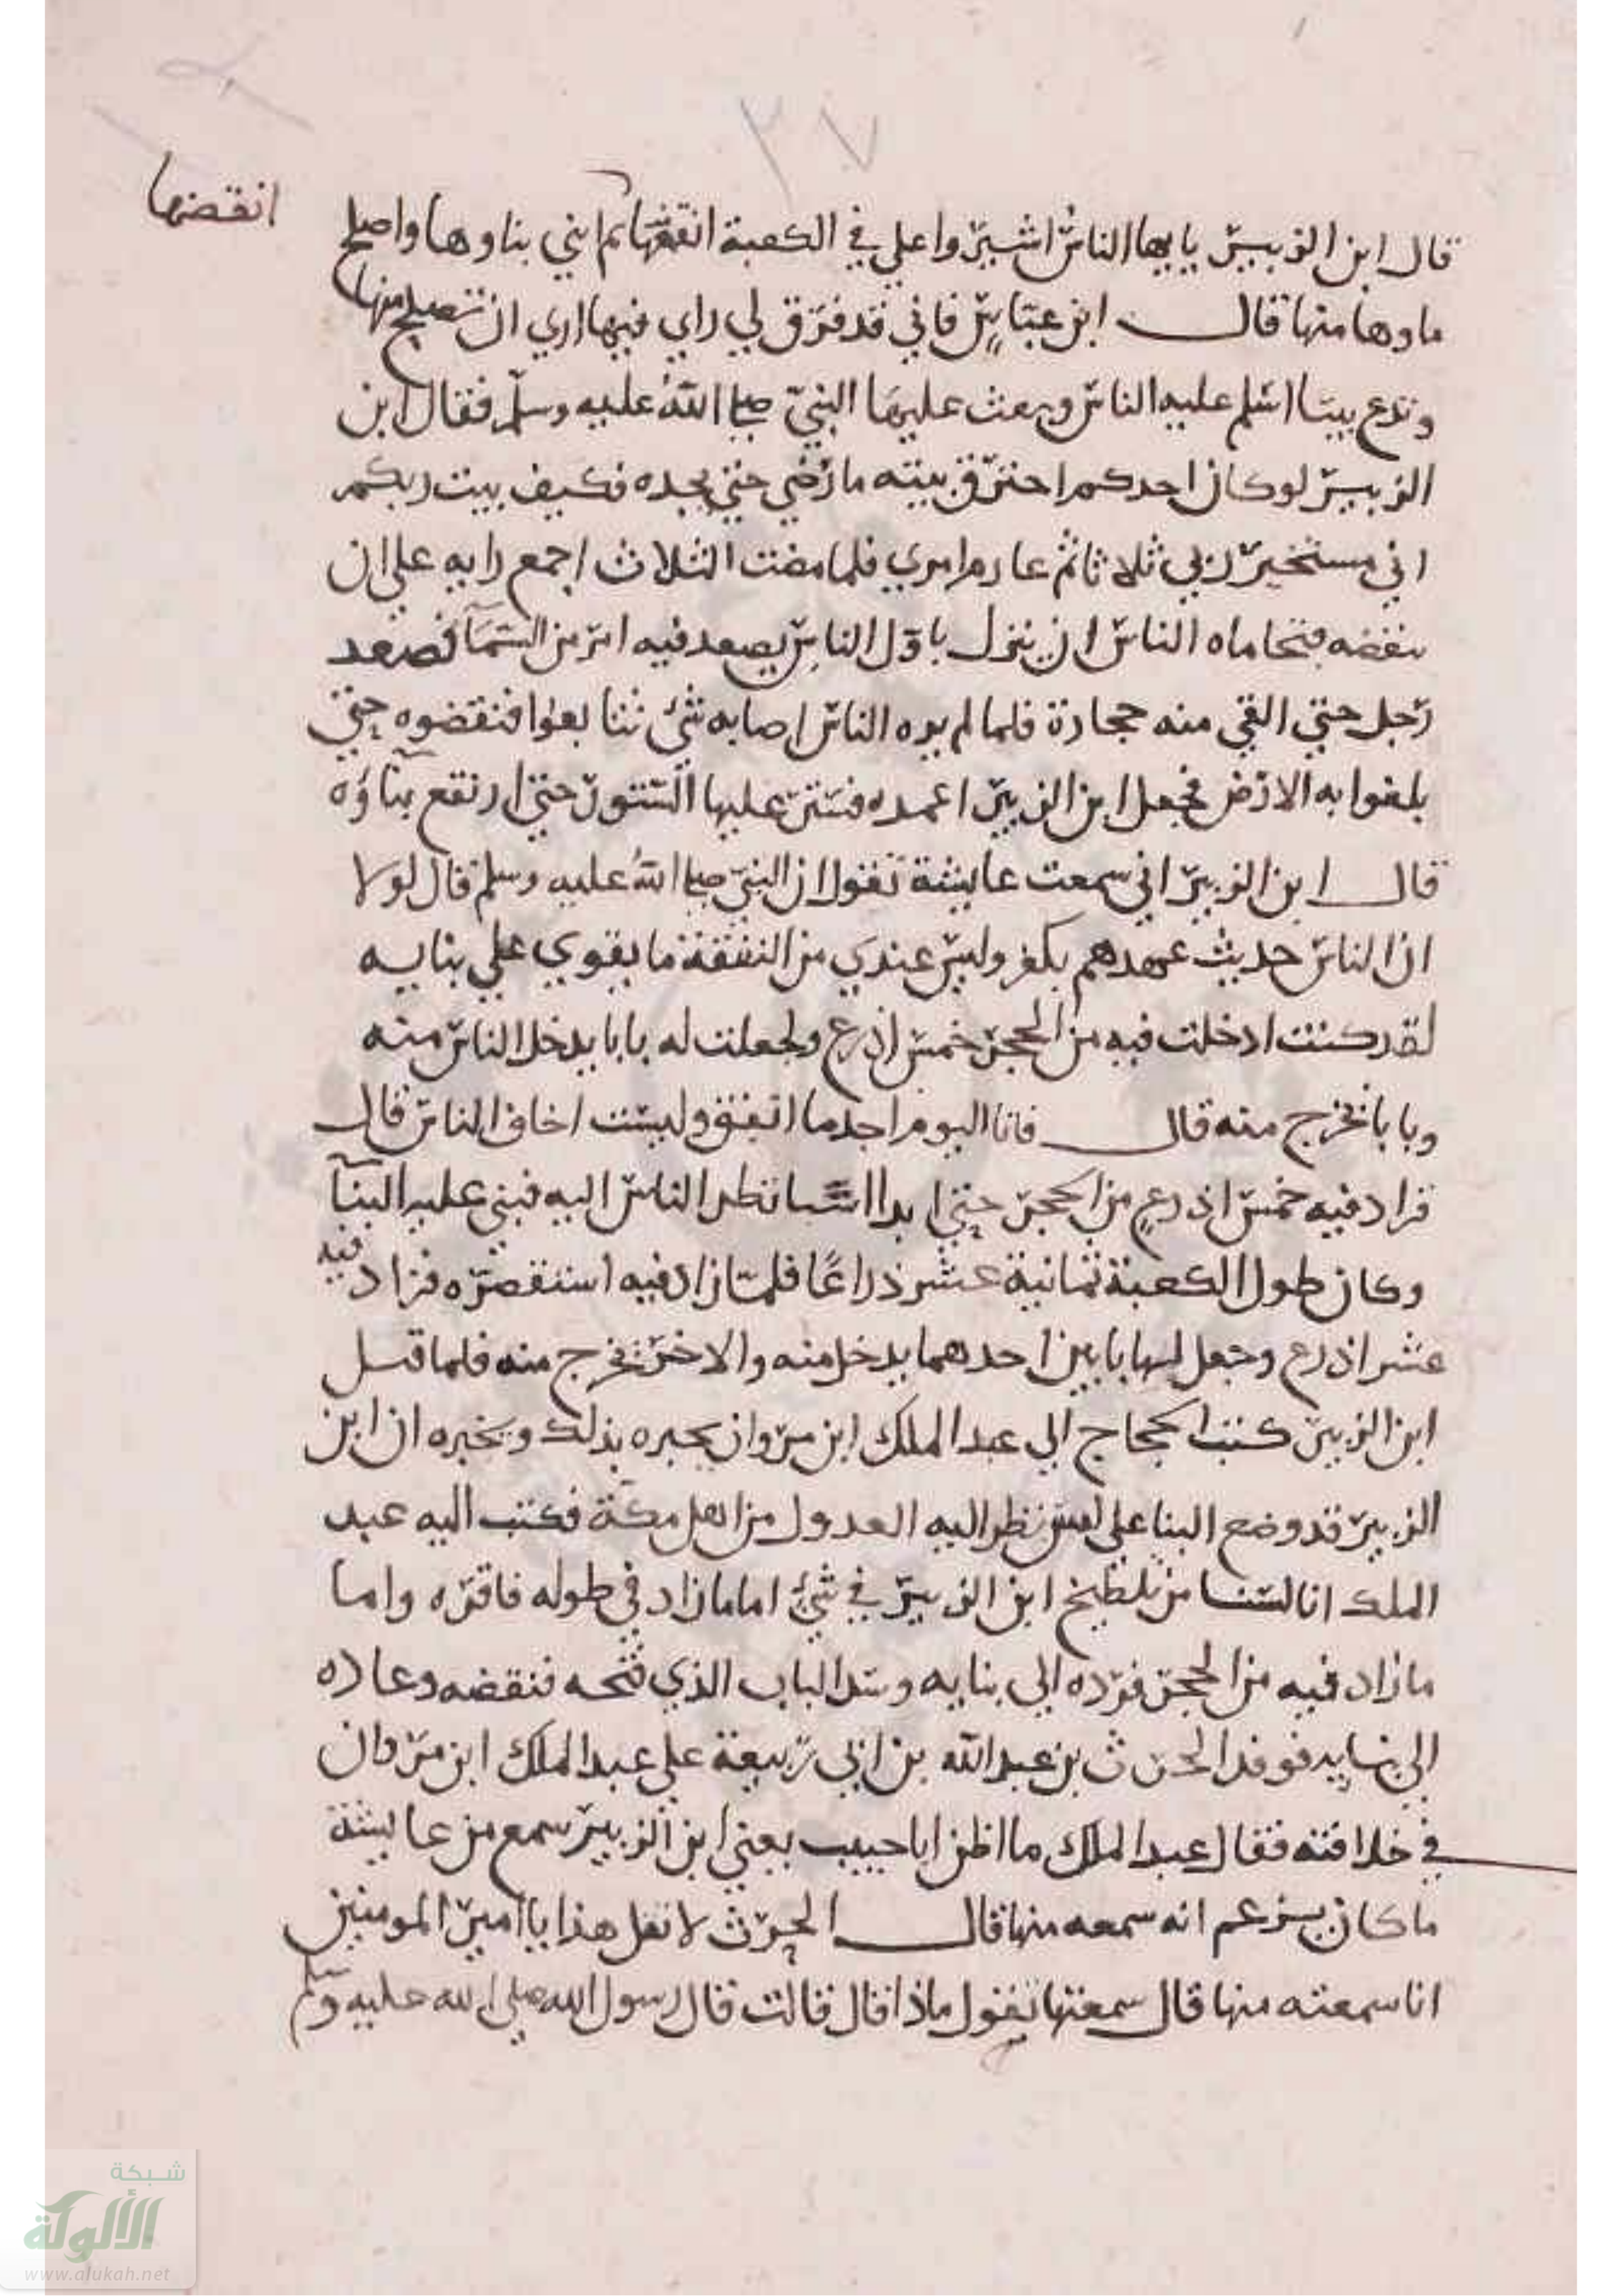 ٢٧
انقضها
قال ابن الزبير يايها الناس اشيروا علي في الكعبة انقضها ثم ابني بناوها واصلح
ماوها منها قال ابن عباس فاني قد فرق لي راي فيها اري ان تصلح منها
وتدع بيتا اسلم عليه الناس وبعث عليها النبي صلى الله عليه وسلم فقال ابن
الزبير لو كان احدكم احترق بيته ما رضي حتي يجده فكيف بيت ربكم
اني مستخير ربي ثلاثا ثم عازم امري فلما مضت الثلاث اجمع رايه علي ان
ينقضه فتحاماه الناس ان ينزل باول الناس يصعد فيه امر من السمآ فصعد
رجل حتي القي منه حجارة فلما لم يره الناس اصابه شئ تتابعوا فنقضوه حتي
بلغوا به الارض فجعل ابن الزبير اعمده فستر عليها الستور حتي ارتفع بنآؤه
قال ابن الزبير اني سمعت عايشة تقول ان النبي صلى الله عليه وسلم قال لولا
ان الناس حديث عهدهم بكفر وليس عندي من النفقة ما يقوي علي بنايه
لقد كنت ادخلت فيه من الحجر خمس اذرع ولجعلت له بابا يدخل الناس منه
وبابا يخرج منه قال فانا اليوم اجد ما انفق ولست اخاف الناس قال
فزاد فيه خمس اذرع من الحجر حتي ابدا اسا نظر الناس اليه فبني عليه البنآ
وكان طول الكعبة ثمانية عشر ذراعا فلما زاد فيه استقصره فزاد فيه
عشر اذرع وجعل لها بابين احدهما يدخل منه والاخر يخرج منه فلما قتل
ابن الزبير كتب الحجاج الي عبد الملك ابن مروان يخبره بذلك ويخبره ان ابن
الزبير قد وضع البنا علي اس نظر اليه العدول من اهل مكة فكتب اليه عبد
الملك انا لسنا من تلطيخ ابن الزبير في شئ اما ما زاد في طوله فاقره واما
ما زاد فيه من الحجر فرده الي بنايه وسد الباب الذي فتحه فنقضه وعاده
الي بنايه فوفد الحرث بن عبد الله بن ابي ربيعة علي عبد الملك ابن مروان
في خلافته فقال عبد الملك ما اظن ابا حبيب يعني ابن الزبير سمع من عايشة
ما كان يزعم انه سمعه منها قال الحرث لا تقل هذا يا امير المومنين
انا سمعته منها قال سمعتها تقول ماذا قال قالت قال رسول الله صلى الله عليه وسلم
شبكة
الألوكة
www.alukah.net